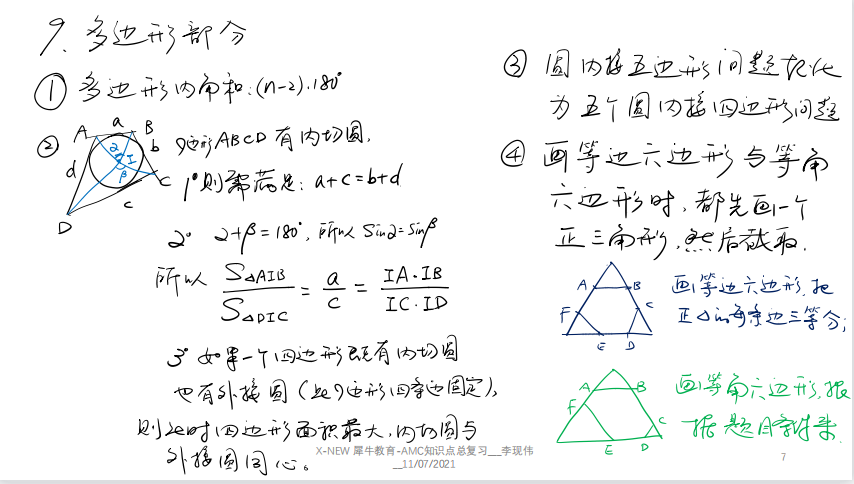 9、多边形部分
① 多边形内角和:(n-2)·180°
② 四边形ABCD有内切圆,
A a B
d b
2 I
β
C
D c
1° 则需满足: a+c=b+d
2° 2+β=180°, 所以 Sin2=Sinβ
所以 S△AIB / S△DIC = a / c = IA·IB / IC·ID
3° 如果一个四边形既有内切圆
也有外接圆(此四边形四条边固定),
则此时四边形面积最大,内切圆与
外接圆同心。
③ 圆内接五边形问题转化
为五个圆内接四边形问题
④ 画等边六边形与等角
六边形时,都先画一个
正三角形,然后截取.
A B
F C
E D
画等边六边形,把
正△的每条边三等分;
A B
F C
E D
画等角六边形,根
据题目条件来.
X-NEW 犀牛教育-AMC知识点总复习__李现伟
__11/07/2021
7